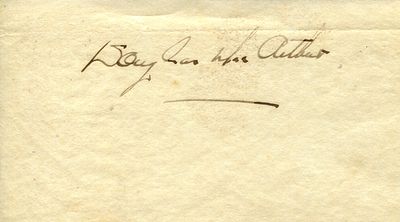 Douglas MacArthur